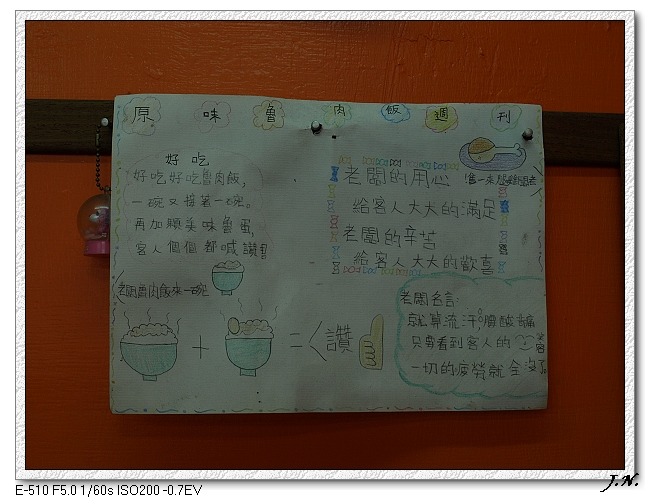 原味魯肉飯週刊
好吃
好吃好吃魯肉飯,
一碗又接著一碗。
再加顆美味魯蛋,
客人個個都喊讚!
老闆魯肉飯來一碗
老闆的用心
給客人大大的滿足
老闆的辛苦
給客人大大的歡喜
老闆名言:
就算流汗腰酸
只要看到客人的笑容
一切的疲勞就全沒了。
+
=
讚
J.N.
E-510 F5.0 1/60s ISO200 -0.7EV